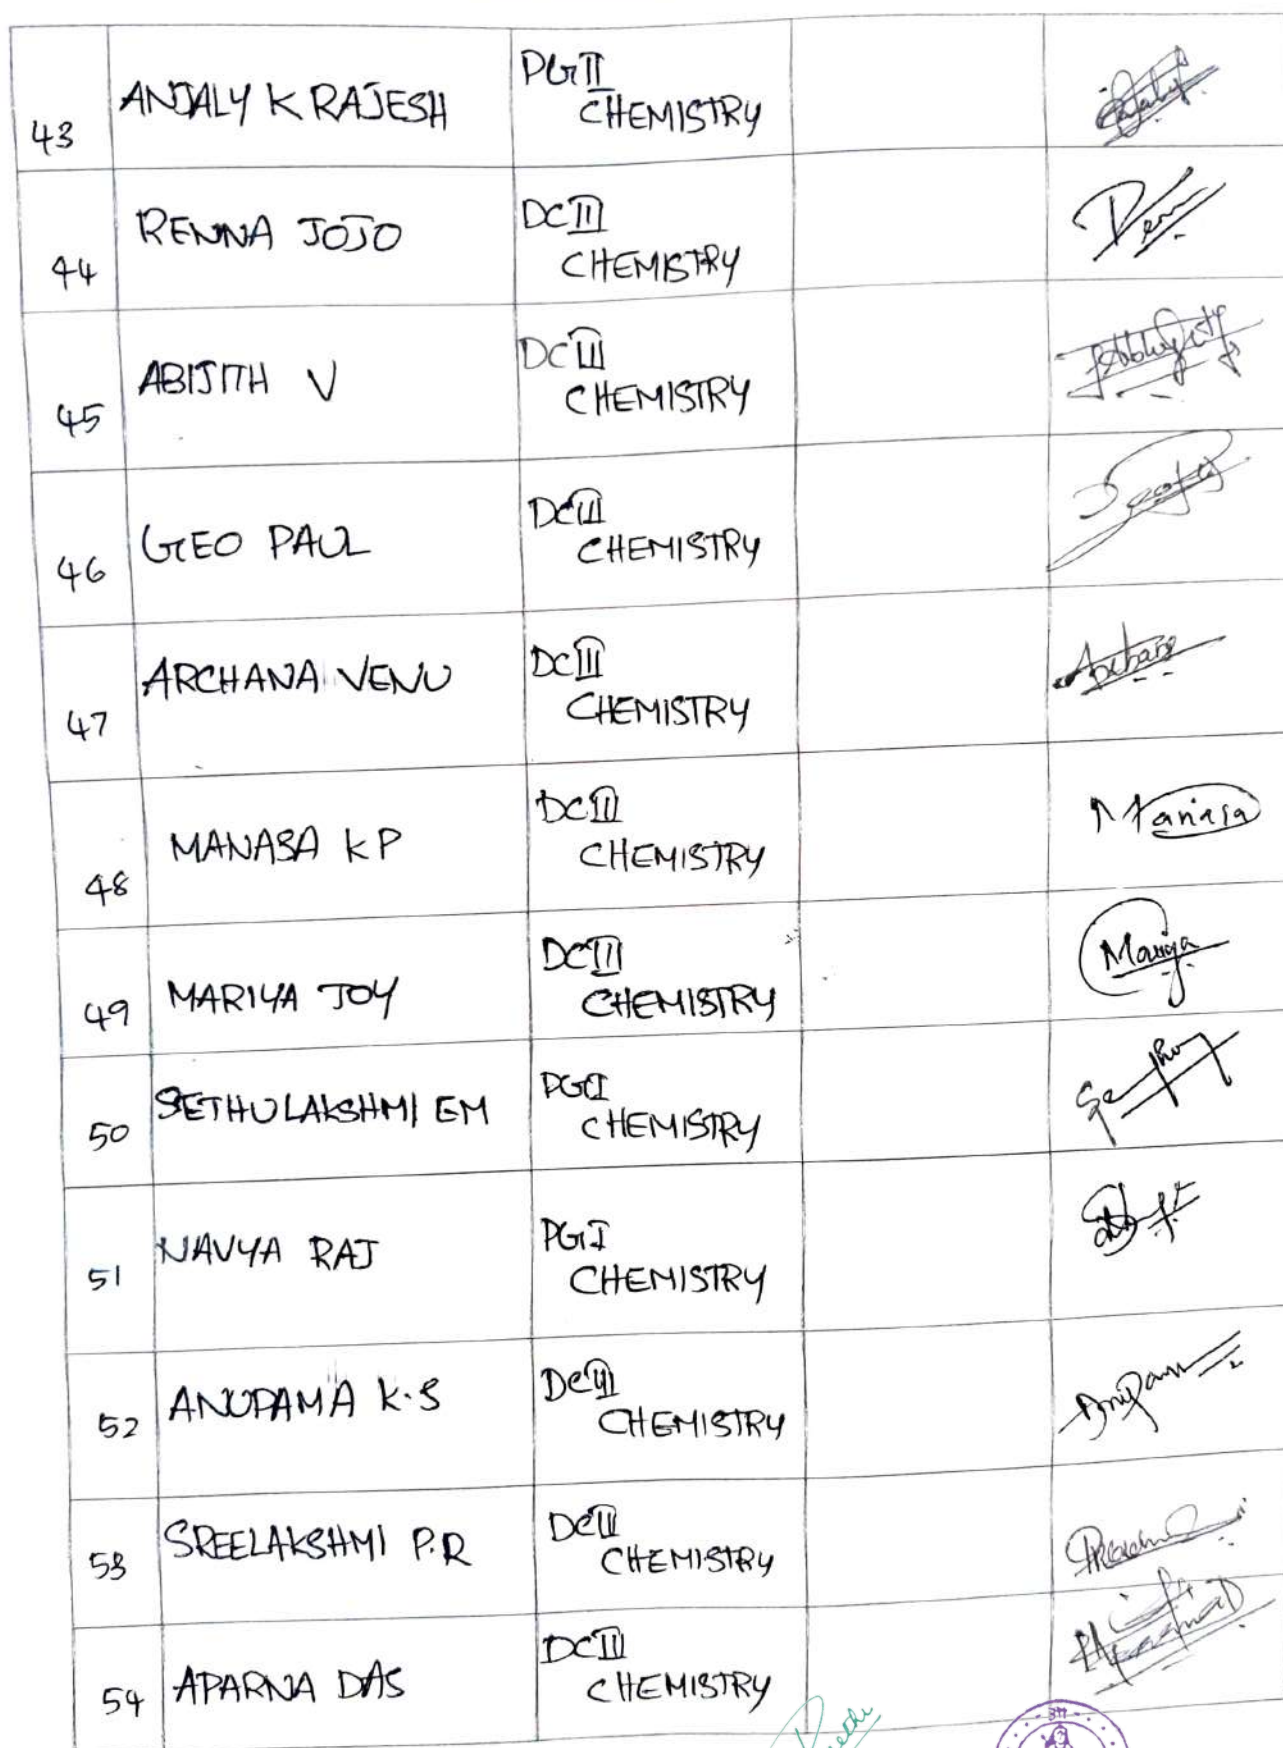 43 ANJALY K RAJESH PG II
CHEMISTRY
44 RENNA JOJO DC III
CHEMISTRY
45 ABIJITH V DC III
CHEMISTRY
46 GEO PAUL DC III
CHEMISTRY
47 ARCHANA VENU DC III
CHEMISTRY
48 MANASA K P DC III
CHEMISTRY Manasa
49 MARIYA JOY DC III
CHEMISTRY Mariya
50 SETHULAKSHMI EM PG I
CHEMISTRY
51 NAVYA RAJ PG I
CHEMISTRY
52 ANUPAMA K.S DC III
CHEMISTRY
53 SREELAKSHMI P.R DC II
CHEMISTRY
54 APARNA DAS DC III
CHEMISTRY